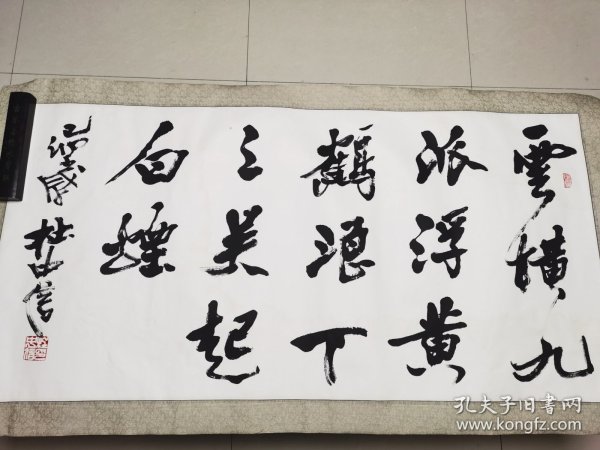 雲横九
派浮黄
鶴浪下
三吴起
白煙
杜中信
孔夫子旧书网
www.kongfz.com